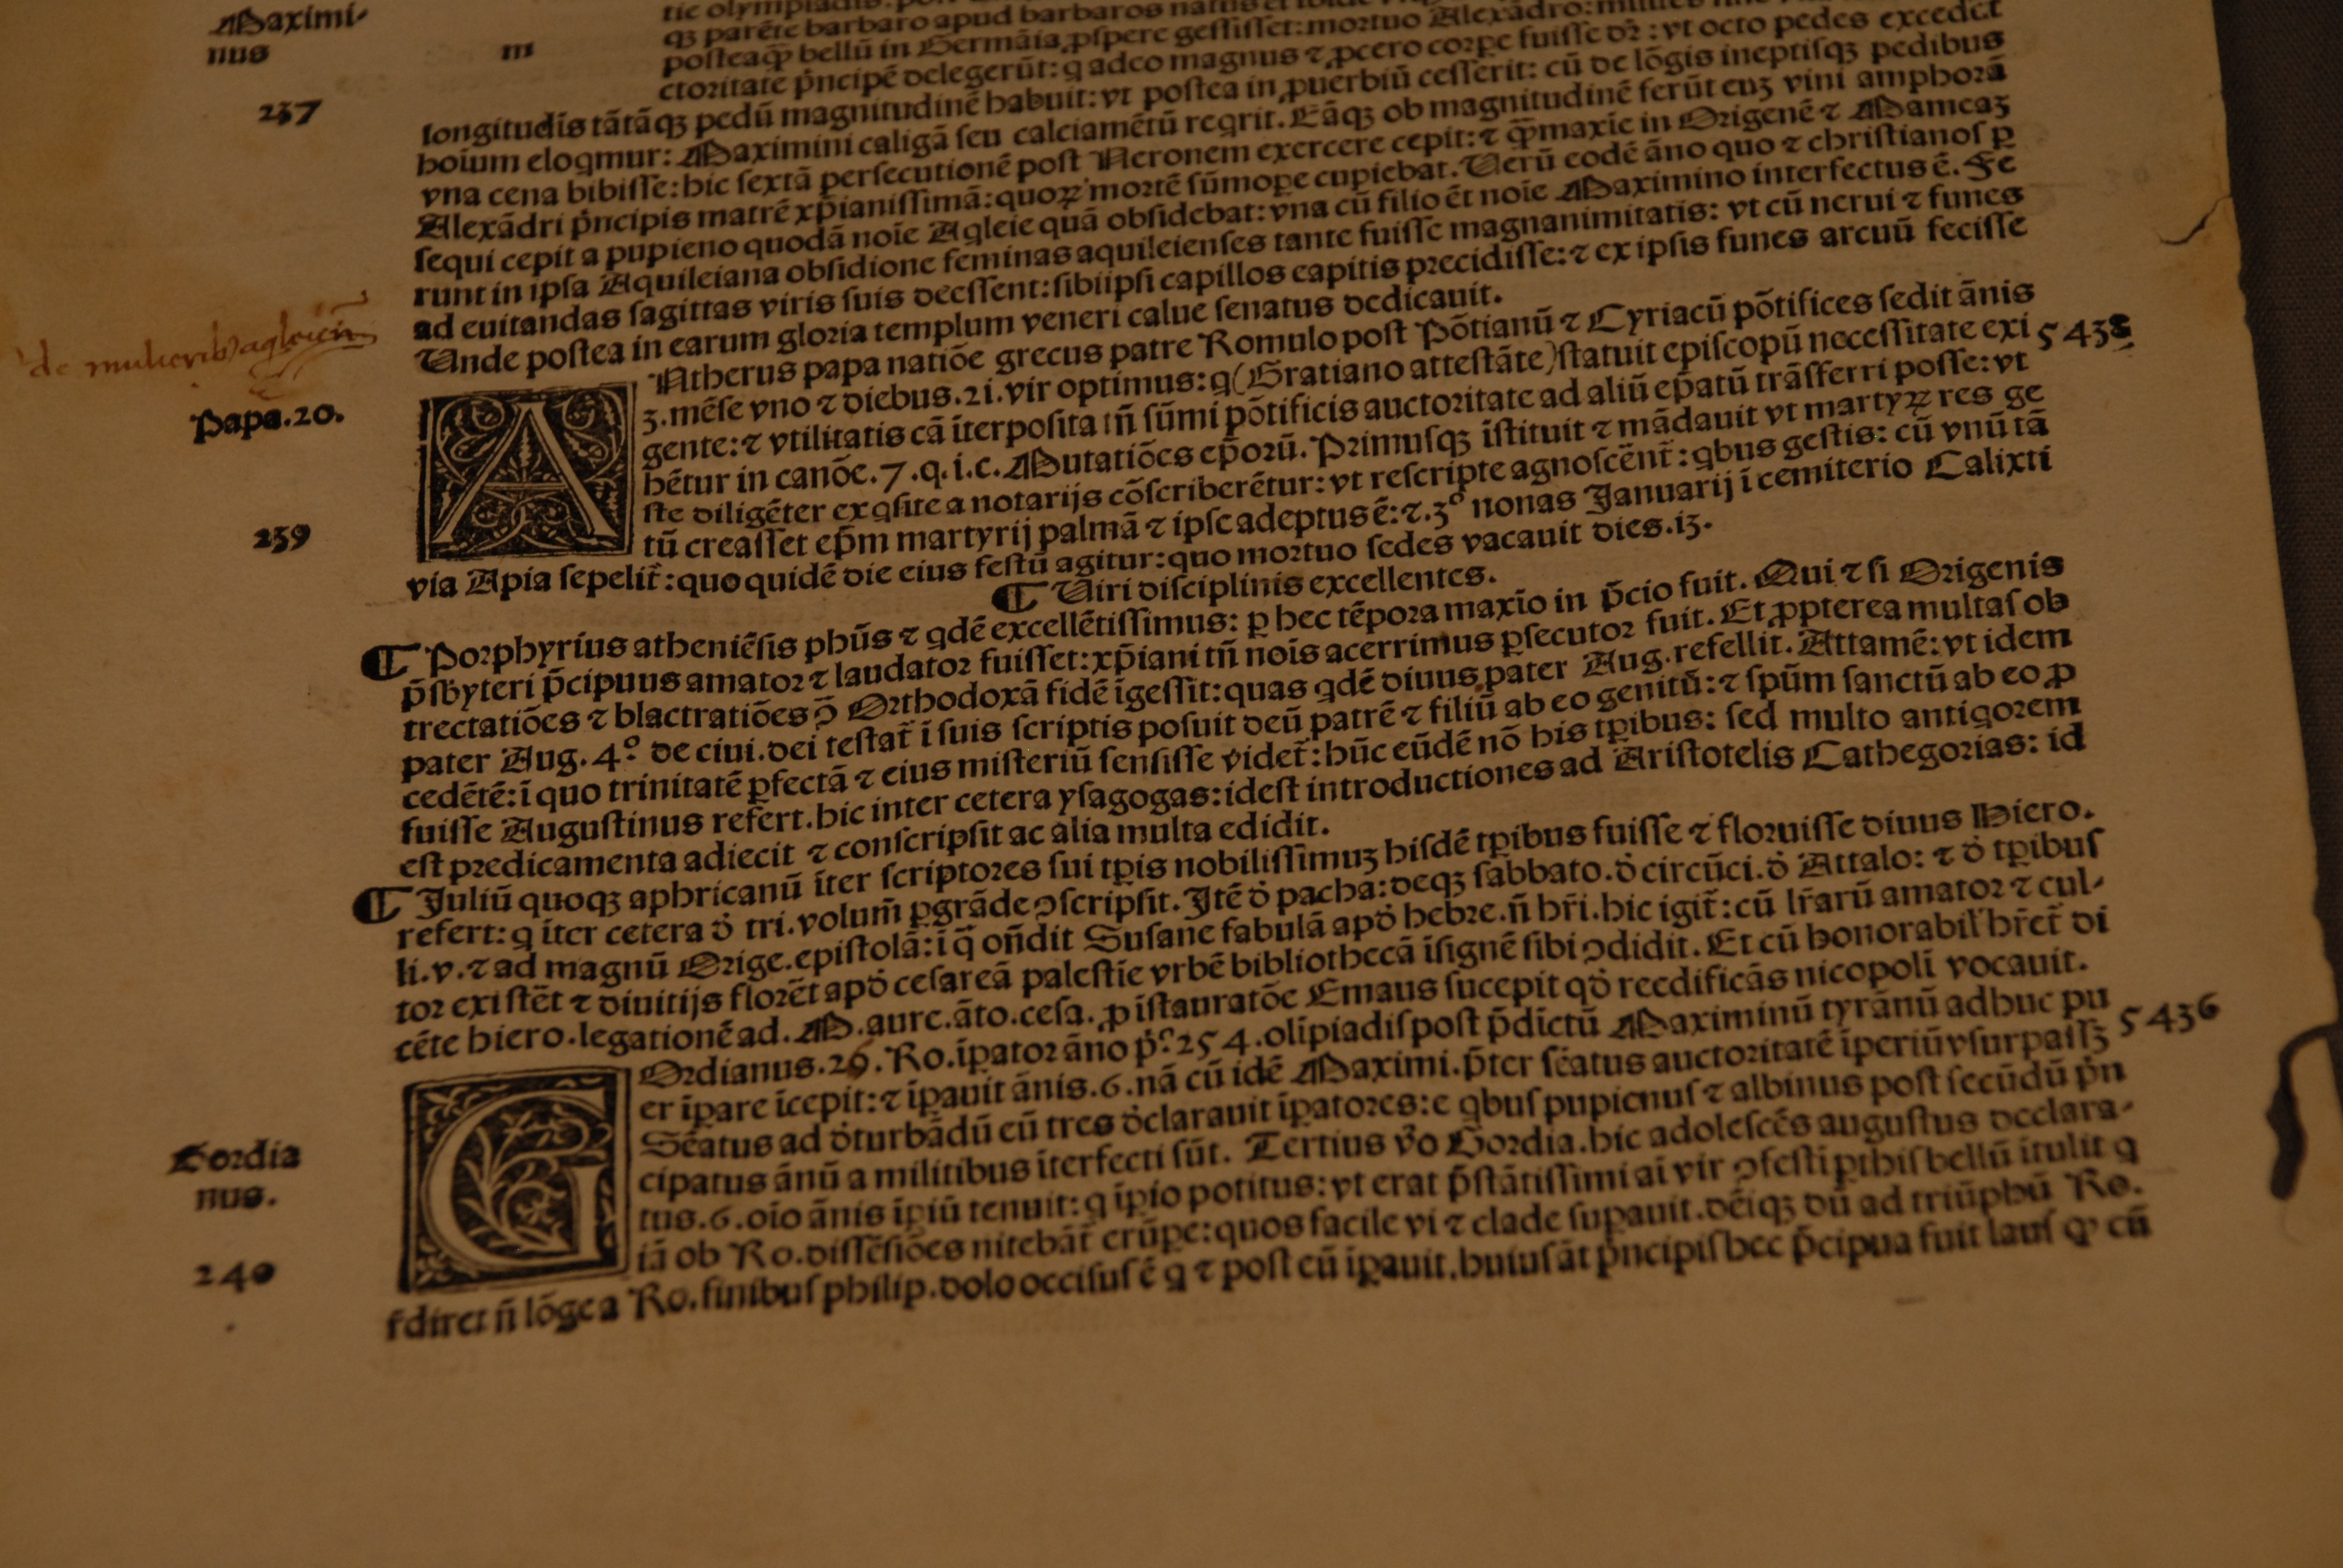 Maximi-
nus
m
237
qʒ parēte barbaro apud barbaros natus
posteaqʒ̄ bellū in Germāia ꝓspere gessisset: mortuo Alexādro:
ctoritate p̄ncipē delegerūt: q adeo magnus ⁊ ꝓcero corꝑe fuisse dr̄: vt octo pedes excedet
longitudīs tātāqʒ pedū magnitudinē habuit: vt postea in ꝓuerbiū cesserit: cū de lōgis ineptisqʒ pedibus
hoīum eloqmur: Maximini caligā seu calciamētū reqrit. Eāqʒ ob magnitudinē ferūt euʒ vini amphorā
vna cena bibisse: hic sextā persecutionē post Neronem exercere cepit: ⁊ qʒ̄maxīe in Origenē ⁊ Mameaʒ
Alexādri p̄ncipis matrē xp̄ianissimā: quoꝝ mortē sūmoꝑe cupiebat. Uerū eodē āno quo ⁊ christianos ꝑ
sequi cepit a pupieno quodā noīe Aqleie quā obsidebat: vna cū filio ēt noīe Maximino interfectus ē. Fe
runt in ipsa Aquileiana obsidione feminas aquileienses tante fuisse magnanimitatis: vt cū nerui ⁊ funes
ad euitandas sagittas viris suis deessent: sibiipsi capillos capitis precidisse: ⁊ ex ipsis funes arcuū fecisse
Unde postea in earum gloria templum veneri calue senatus dedicauit.
de mulierib) aqleien
Papa.20.
239
ANtherus papa natiōe grecus patre Romulo post Pōtianū ⁊ Cyriacū pōtifices sedit ānis
5438
3. mēse vno ⁊ diebus.21. vir optimus: q (Gratiano attestāte) statuit episcopū necessitate exi
gente: ⁊ vtilitatis cā īterposita tn̄ sūmi pōtificis auctoritate ad aliū ep̄atū trāsferri posse: vt
hētur in canōe.7.q.i.c. Mutatiōes ep̄orū. Primusqʒ īstituit ⁊ mādauit vt martyꝝ res ge
ste diligēter exqsite a notarijs cōscriberētur: vt rescripte agnoscēnt̄: qbus gestis: cū vnū tā
tū creasset ep̄m martyrij palmā ⁊ ipse adeptus ē: ⁊.3º nonas Januarij ī cemiterio Calixti
via Apia sepelit̄: quo quidē die eius festū agitur: quo mortuo sedes vacauit dies.i3.
¶ Uiri disciplinis excellentes.
¶ Porphyrius atheniēsis phūs ⁊ qdē excellētissimus: ꝑ hec tēpora maxīo in p̄cio fuit. Qui ⁊ si Origenis
p̄sbyteri p̄cipuus amator ⁊ laudator fuisset: xp̄iani tn̄ noīs acerrimus ꝑsecutor fuit. Et ꝓpterea multas ob
trectatiōes ⁊ blactratiōes ↄ̄ Orthodoxā fidē īgessit: quas qdē diuus pater Aug. refellit. Attamē: vt idem
pater Aug.4º de ciui.dei testat̄ ī suis scriptis posuit deū patrē ⁊ filiū ab eo genitū: ⁊ spūm sanctū ab eo ꝓ
cedētē: ī quo trinitatē ꝑfectā ⁊ eius misteriū sensisse videt̄: hūc eūdē nō his tꝑibus: sed multo antiqorem
fuisse Augustinus refert. hic inter cetera ysagogas: idest introductiones ad Aristotelis Cathegorias: id
est predicamenta adiecit ⁊ conscripsit ac alia multa edidit.
¶ Juliū quoqʒ aphricanū īter scriptores sui tꝑis nobilissimuʒ hisdē tꝑibus fuisse ⁊ floruisse diuus Hiero.
refert: q īter cetera ḋ tri. volum̄ ꝑgrāde ↄscripsit. Itē ḋ pacha: deqʒ sabbato. ḋ circūci. ḋ Attalo: ⁊ ḋ tꝑibus
li.v.⁊ ad magnū Orige. epistolā: ī q̄ on̄dit Susane fabulā apḋ hebre. n̄ hr̄i. hic igit̄: cū lr̄arū amator ⁊ cul-
tor existēt ⁊ diuitijs florēt apḋ cesareā palestīe vrbē bibliothecā īsignē sibi ↄdidit. Et cū honorabil' hr̄et̄ di
cēte hiero. legationē ad. M. aure. āto. cesa. ꝓ īstauratōe Emaus sucepit qḋ reedificās nicopolī vocauit.
Gordia
nus.
240
GOrdianus.26. Ro. īpator āno p̄º.254. olīpiadis post p̄dictū Maximinū tyrānū adhuc pu
5436
er īpare īcepit: ⁊ īpauit ānis.6. nā cū idē Maximi. p̄ter sēatus auctoritatē īperiū vsurpassʒ
Sēatus ad ḋturbādū eū tres ḋclarauit īpatores: e qbus pupienus ⁊ albinus post secūdū p̄n
cipatus ānū a militibus īterfecti sūt. Tertius v̊o Gordia. hic adolescēs augustus declara-
tus.6. oīo ānis īpiū tenuit: q īpīo potitus: vt erat p̄stātissimi aī vir ↄfestī ꝑthis bellū ītulit q
iā ob Ro. dissēsiōes nitebāt̄ erūpe: quos facile vi ⁊ clade supauit. dēiqʒ dū ad triūphū Ro.
r̄diret n̄ lōge a Ro. finibus philip. dolo occisus ē q ⁊ post eū īpauit. huius āt p̄ncipis hec p̄cipua fuit laus ꝙ cū